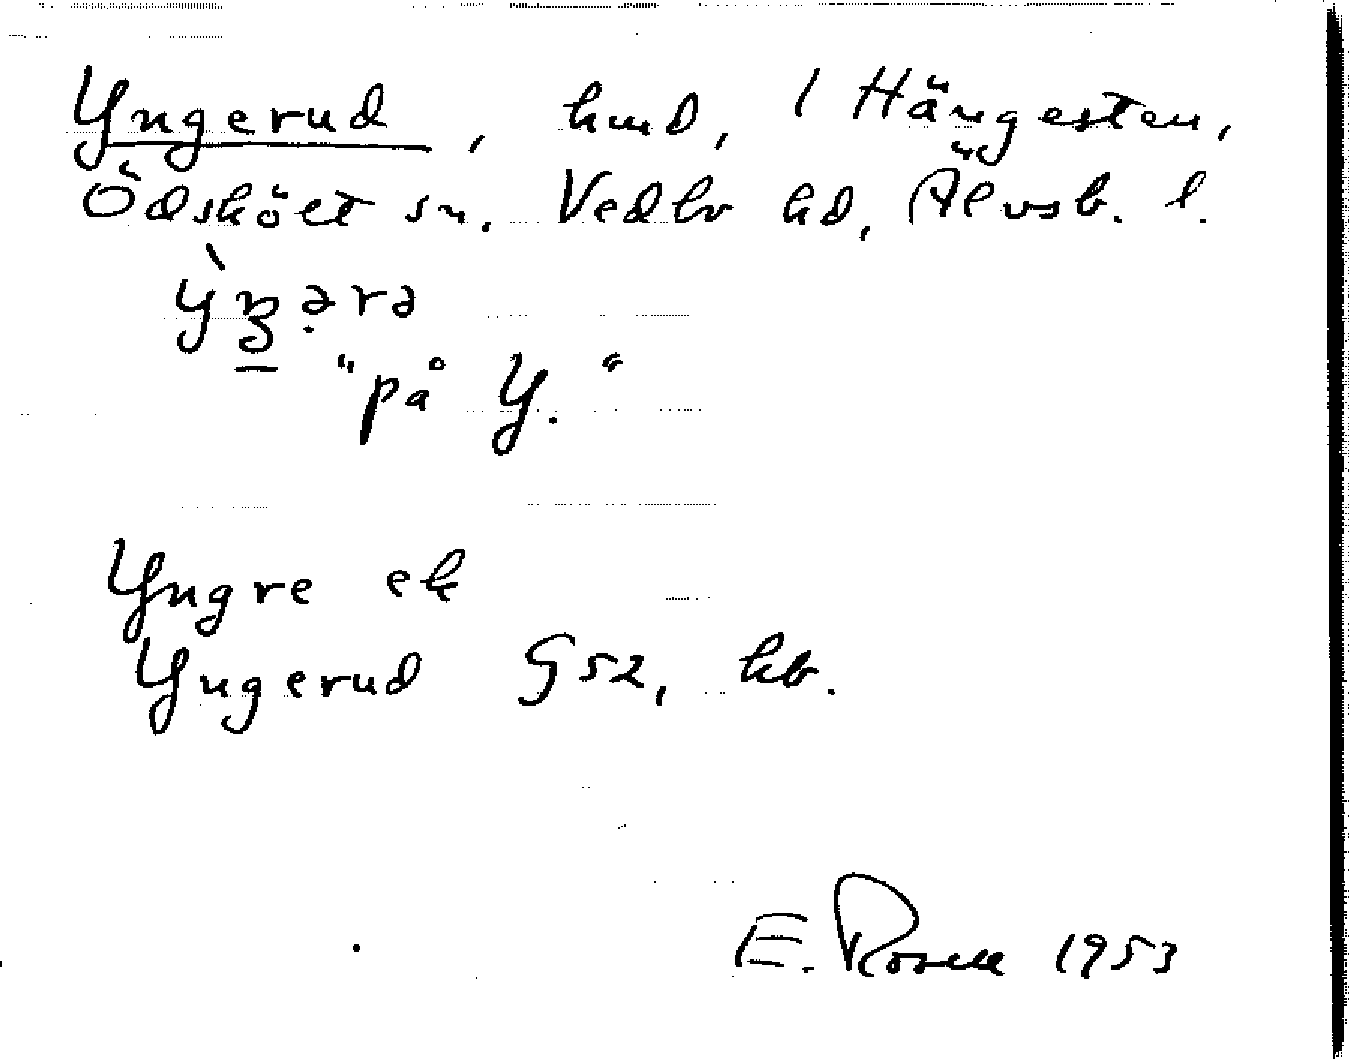 Yngerud, hmd, 1 Hängesten,
Ödskölt sn. Vedbo hd, Älvsb. l.
"på Y."
Yngre ek
Yngerud G52, kb.
E. Rosell 1953